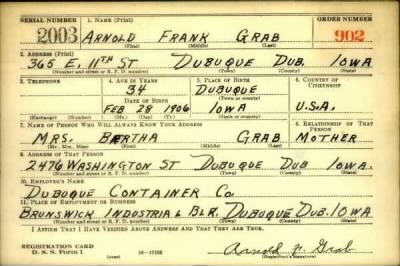 SERIAL NUMBER 1. NAME (Print) ORDER NUMBER
2003 ARNOLD FRANK GRAB 902
(First) (Middle) (Last)
2. ADDRESS (Print)
365 E. 11TH ST DUBUQUE DUB. IOWA
(Number and street or R. F. D. number) (Town) (County) (State)
3. TELEPHONE 4. AGE IN YEARS 5. PLACE OF BIRTH 6. COUNTRY OF CITIZENSHIP
34 DUBUQUE
DATE OF BIRTH (Town or county)
FEB 28 1906 IOWA U.S.A.
(Exchange) (Number) (Mo.) (Day) (Yr.) (State or country)
7. NAME OF PERSON WHO WILL ALWAYS KNOW YOUR ADDRESS 8. RELATIONSHIP OF THAT PERSON
MRS. BERTHA GRAB MOTHER
(Mr., Mrs., Miss) (First) (Middle) (Last)
9. ADDRESS OF THAT PERSON
2476 WASHINGTON ST DUBUQUE DUB IOWA.
(Number and street or R. F. D. number) (Town) (County) (State)
10. EMPLOYER'S NAME
DUBUQUE CONTAINER CO
11. PLACE OF EMPLOYMENT OR BUSINESS
BRUNSWICK INDUSTRIAL BLK. DUBUQUE DUB. IOWA
(Number and street or R. F. D. number) (Town) (County) (State)
I AFFIRM THAT I HAVE VERIFIED ABOVE ANSWERS AND THAT THEY ARE TRUE.
REGISTRATION CARD
D. S. S. FORM 1 (over) 16—17105 Arnold F. Grab